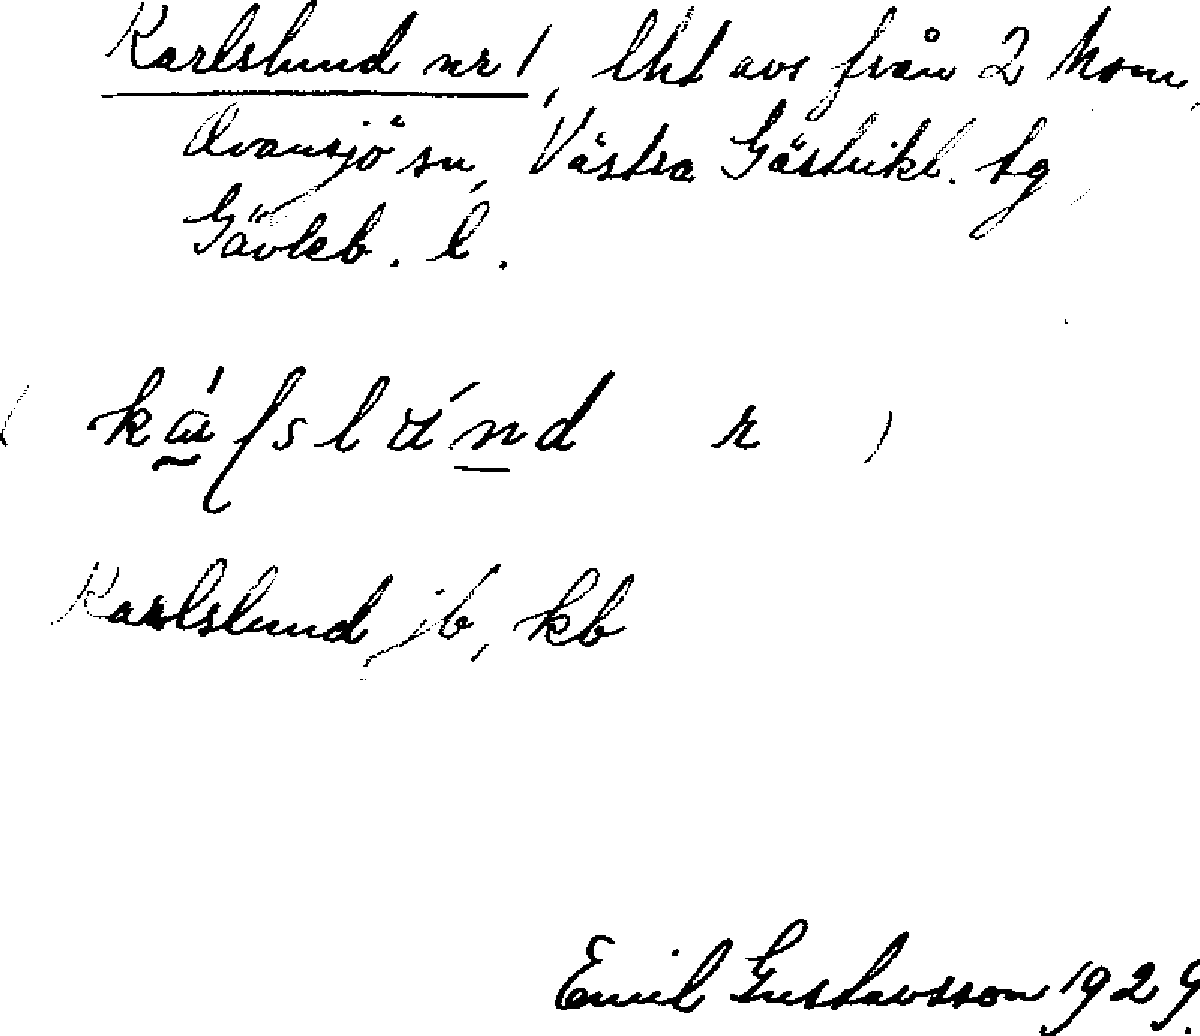 Karlslund nr 1, lht avs från 2 Mom,
Ovansjö sn, Västra Gästrikl. tg,
Gävleb. l.
Karlslund jb, kb
Emil Gustavsson 1929.